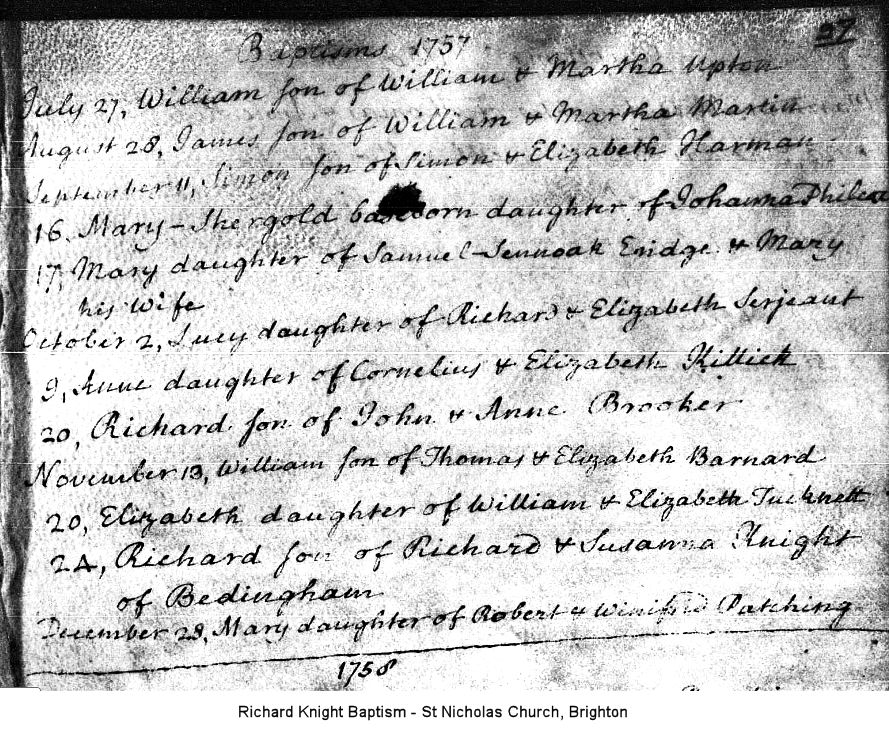 37
Baptisms 1757
July 27, William son of William & Martha Upton
August 28, James son of William & Martha Martin
September 11, Simon son of Simon & Elizabeth Harman
16. Mary-Shergold baseborn daughter of Johanna
17, Mary daughter of Samuel-Sennoak Eridge & Mary
his Wife
October 2, Lucy daughter of Richard & Elizabeth Serjeant
9, Anne daughter of Cornelius & Elizabeth Killick
20, Richard son of John & Anne Brooker
November 13, William son of Thomas & Elizabeth Barnard
20, Elizabeth daughter of William & Elizabeth Tucknett
24, Richard son of Richard & Susanna Knight
of Bedingham
December 28, Mary daughter of Robert & Winifred Patching
1758
Richard Knight Baptism - St Nicholas Church, Brighton